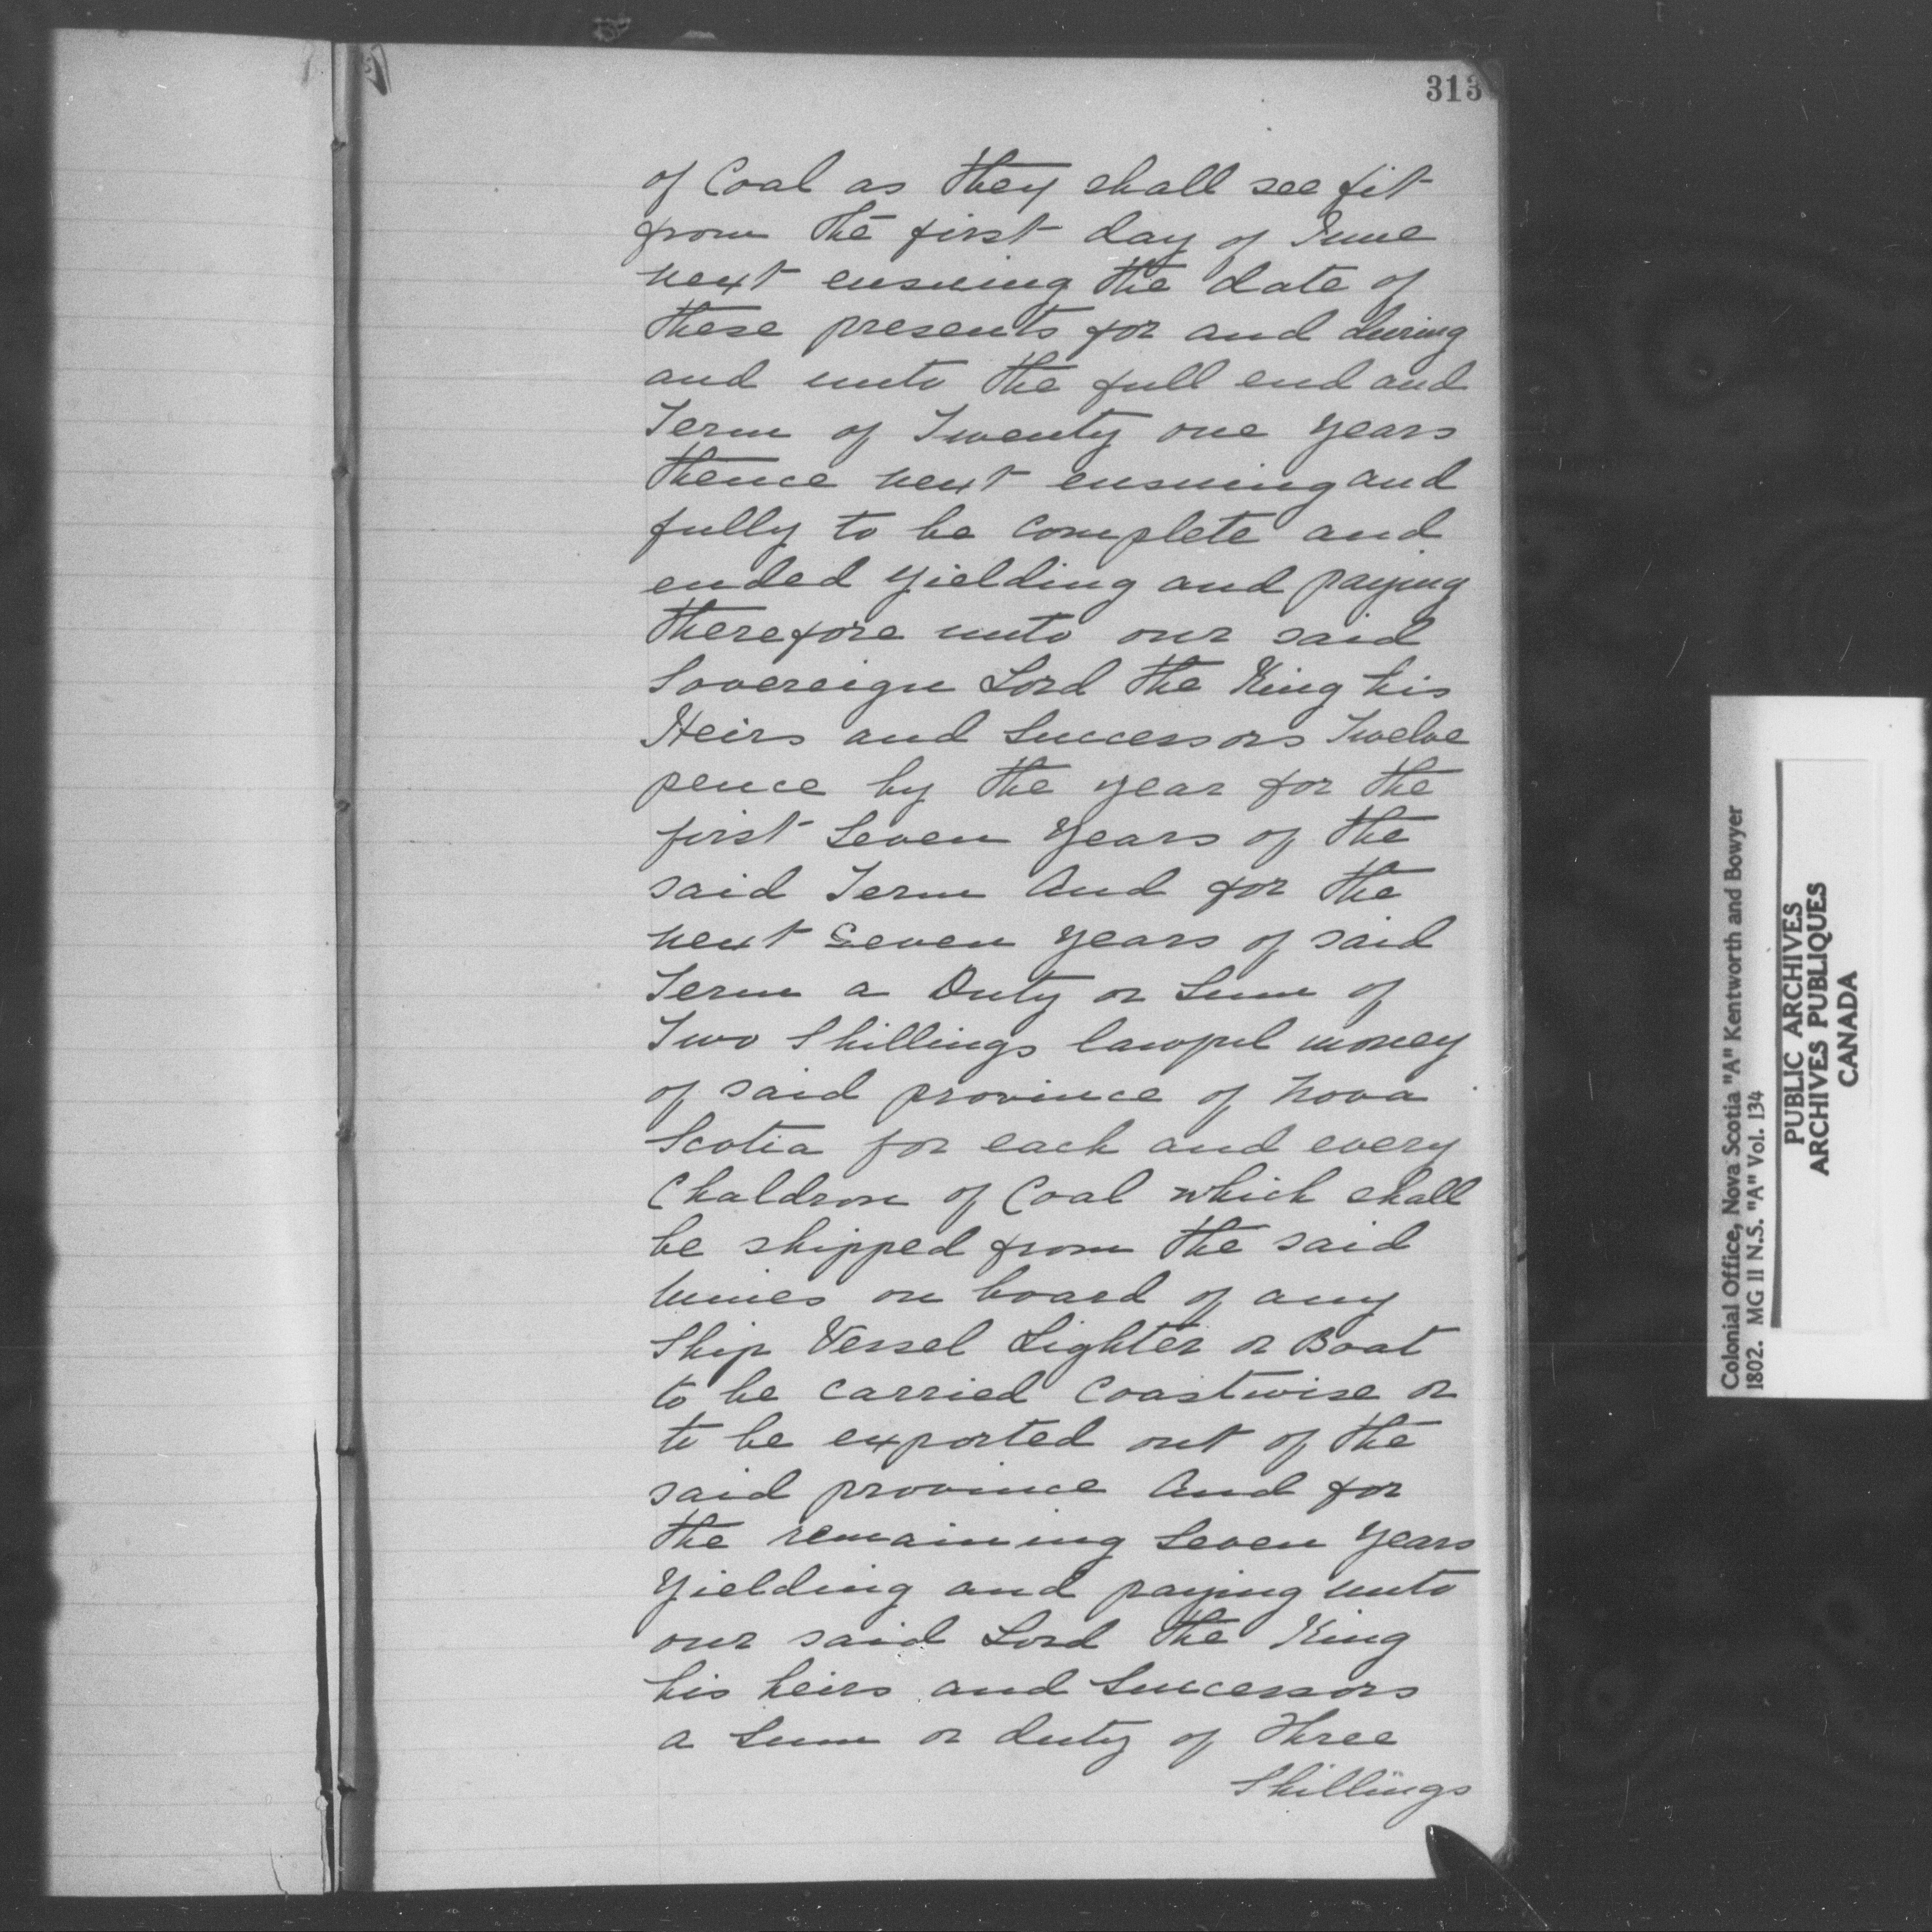 313
of Coal as they shall see fit
from the first day of June
next ensuing the date of
these presents for and during
and unto the full end and
Term of Twenty one years
thence next ensuing and
fully to be complete and
ended yielding and paying
therefore unto our said
Sovereign Lord the King his
Heirs and Successors Twelve
pence by the year for the
first Seven Years of the
said Term And for the
next Seven years of said
Term a Duty or Sum of
Two Shillings lawful money
of said province of Nova
Scotia for each and every
Chaldron of Coal which shall
be shipped from the said
Mines on board of any
Ship Vessel Lighter or Boat
to be carried Coastwise or
to be exported out of the
said province And for
the remaining Seven Years
Yielding and paying unto
our said Lord the King
his heirs and Successors
a Sum or duty of Three
Shillings
Colonial Office, Nova Scotia "A" Kentworth and Bowyer
1802. MG 11 N.S. "A" Vol. 134
PUBLIC ARCHIVES
ARCHIVES PUBLIQUES
CANADA